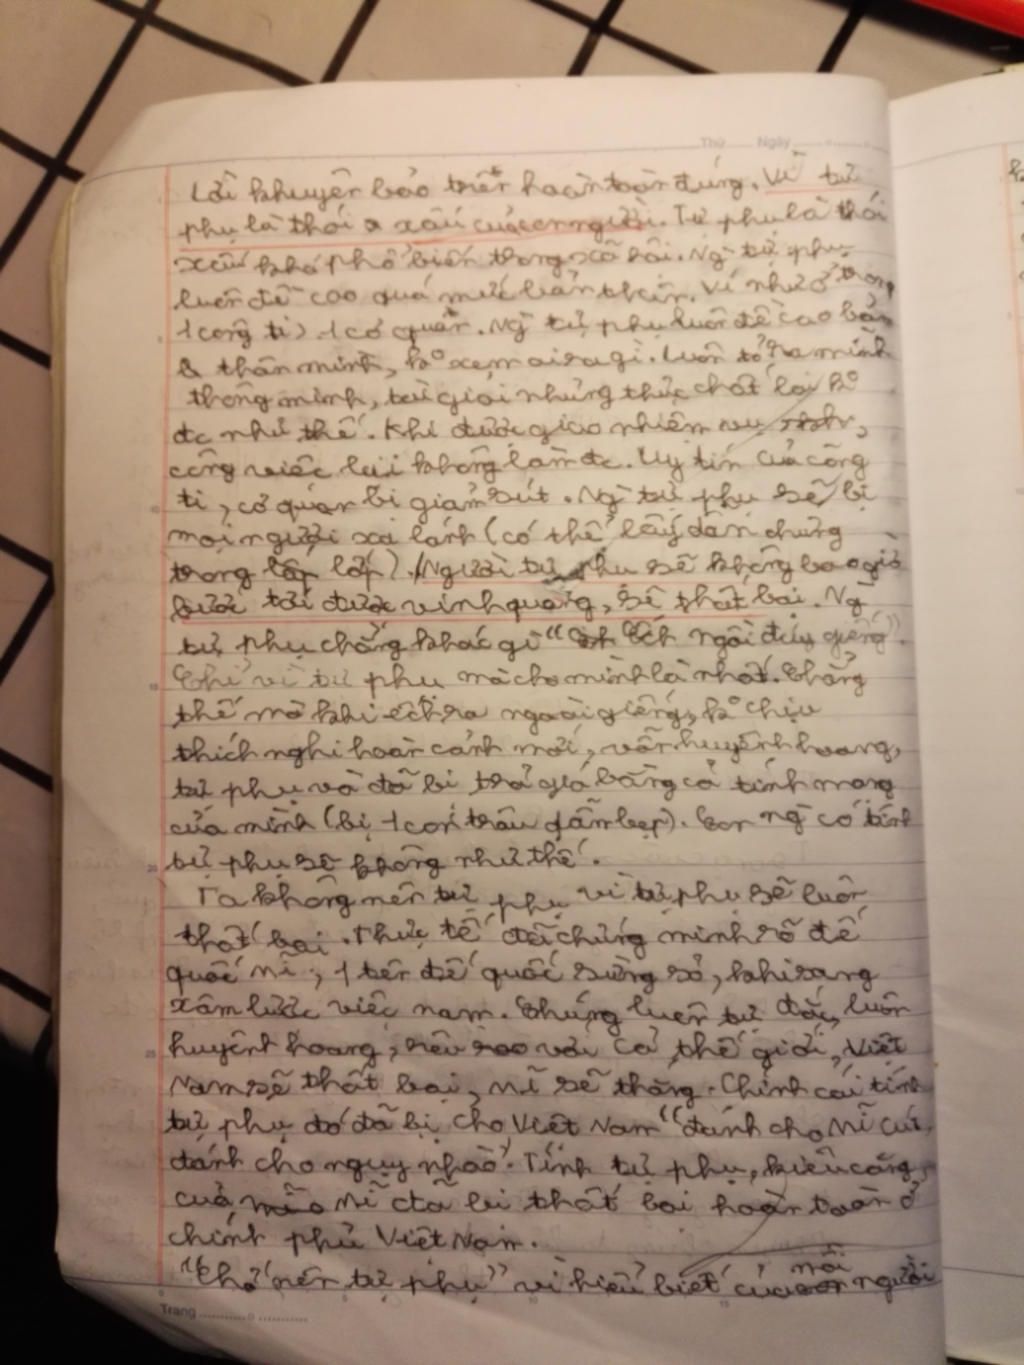 Thứ Ngày
Lời khuyên bảo trên hoàn toàn đúng. Vì tự
phụ là thói xấu của con người. Tự phụ là thói
xấu khá phổ biến trong xã hội. Ng tự phụ
luôn đề cao quá mức bản thân. Ví như ở trong
1 công ti, 1 cơ quan. Ng tự phụ luôn đề cao bản
thân mình, ko xem ai ra gì. Luôn tỏ ra mình
thông minh, tài giỏi nhưng thực chất lại ko
đc như thế. Khi được giao nhiệm vụ,
công việc lại không làm đc. Uy tín của công
ti, cơ quan bị giảm sút. Ng tự phụ sẽ bị
mọi người xa lánh (có thể lấy dẫn chứng
trong lớp). Người tự phụ sẽ không bao giờ
bước tới được vinh quang, sẽ thất bại. Ng
tự phụ chẳng khác gì "Ếch ngồi đáy giếng".
Chỉ vì tự phụ mà cho mình là nhất. Chẳng
thế mà khi ếch ra ngoài giếng, ko chịu
thích nghi hoàn cảnh mới, vẫn huyênh hoang,
tự phụ và đã bị trả giá bằng cả tính mạng
của mình (bị 1 con trâu dẫm bẹp). Con ng có tính
tự phụ sẽ không như thế.
Ta không nên tự phụ vì tự phụ sẽ luôn
thất bại. Thực tế đã chứng minh rõ đế
quốc Mĩ, 1 tên đế quốc sừng sỏ, khi sang
xâm lược việc nam. Chúng luôn tự đắc, luôn
huyênh hoang, với cả thế giới, Việt
Nam sẽ thất bại, Mĩ sẽ thắng. Chính cái tính
tự phụ đó đã bị cho Việt Nam "đánh cho Mĩ cút,
đánh cho nguỵ nhào". Tính tự phụ, kiêu căng
của Mĩ đã bị thất bại hoàn toàn ở
chính phủ Việt Nam.
"Chớ nên tự phụ" vì hiểu biết của mỗi người
Trang